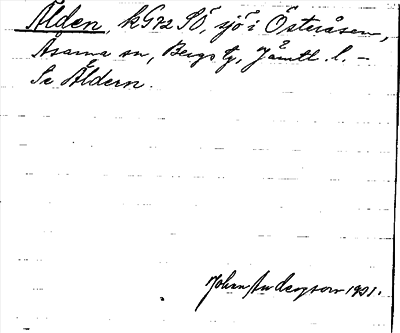 Ålden, kG72 SÖ, sjö i Österåsen,
Åsarna sn, Bergs tg, Jämtl. l. –
Se Äldern.
Johan Anderson 1921.